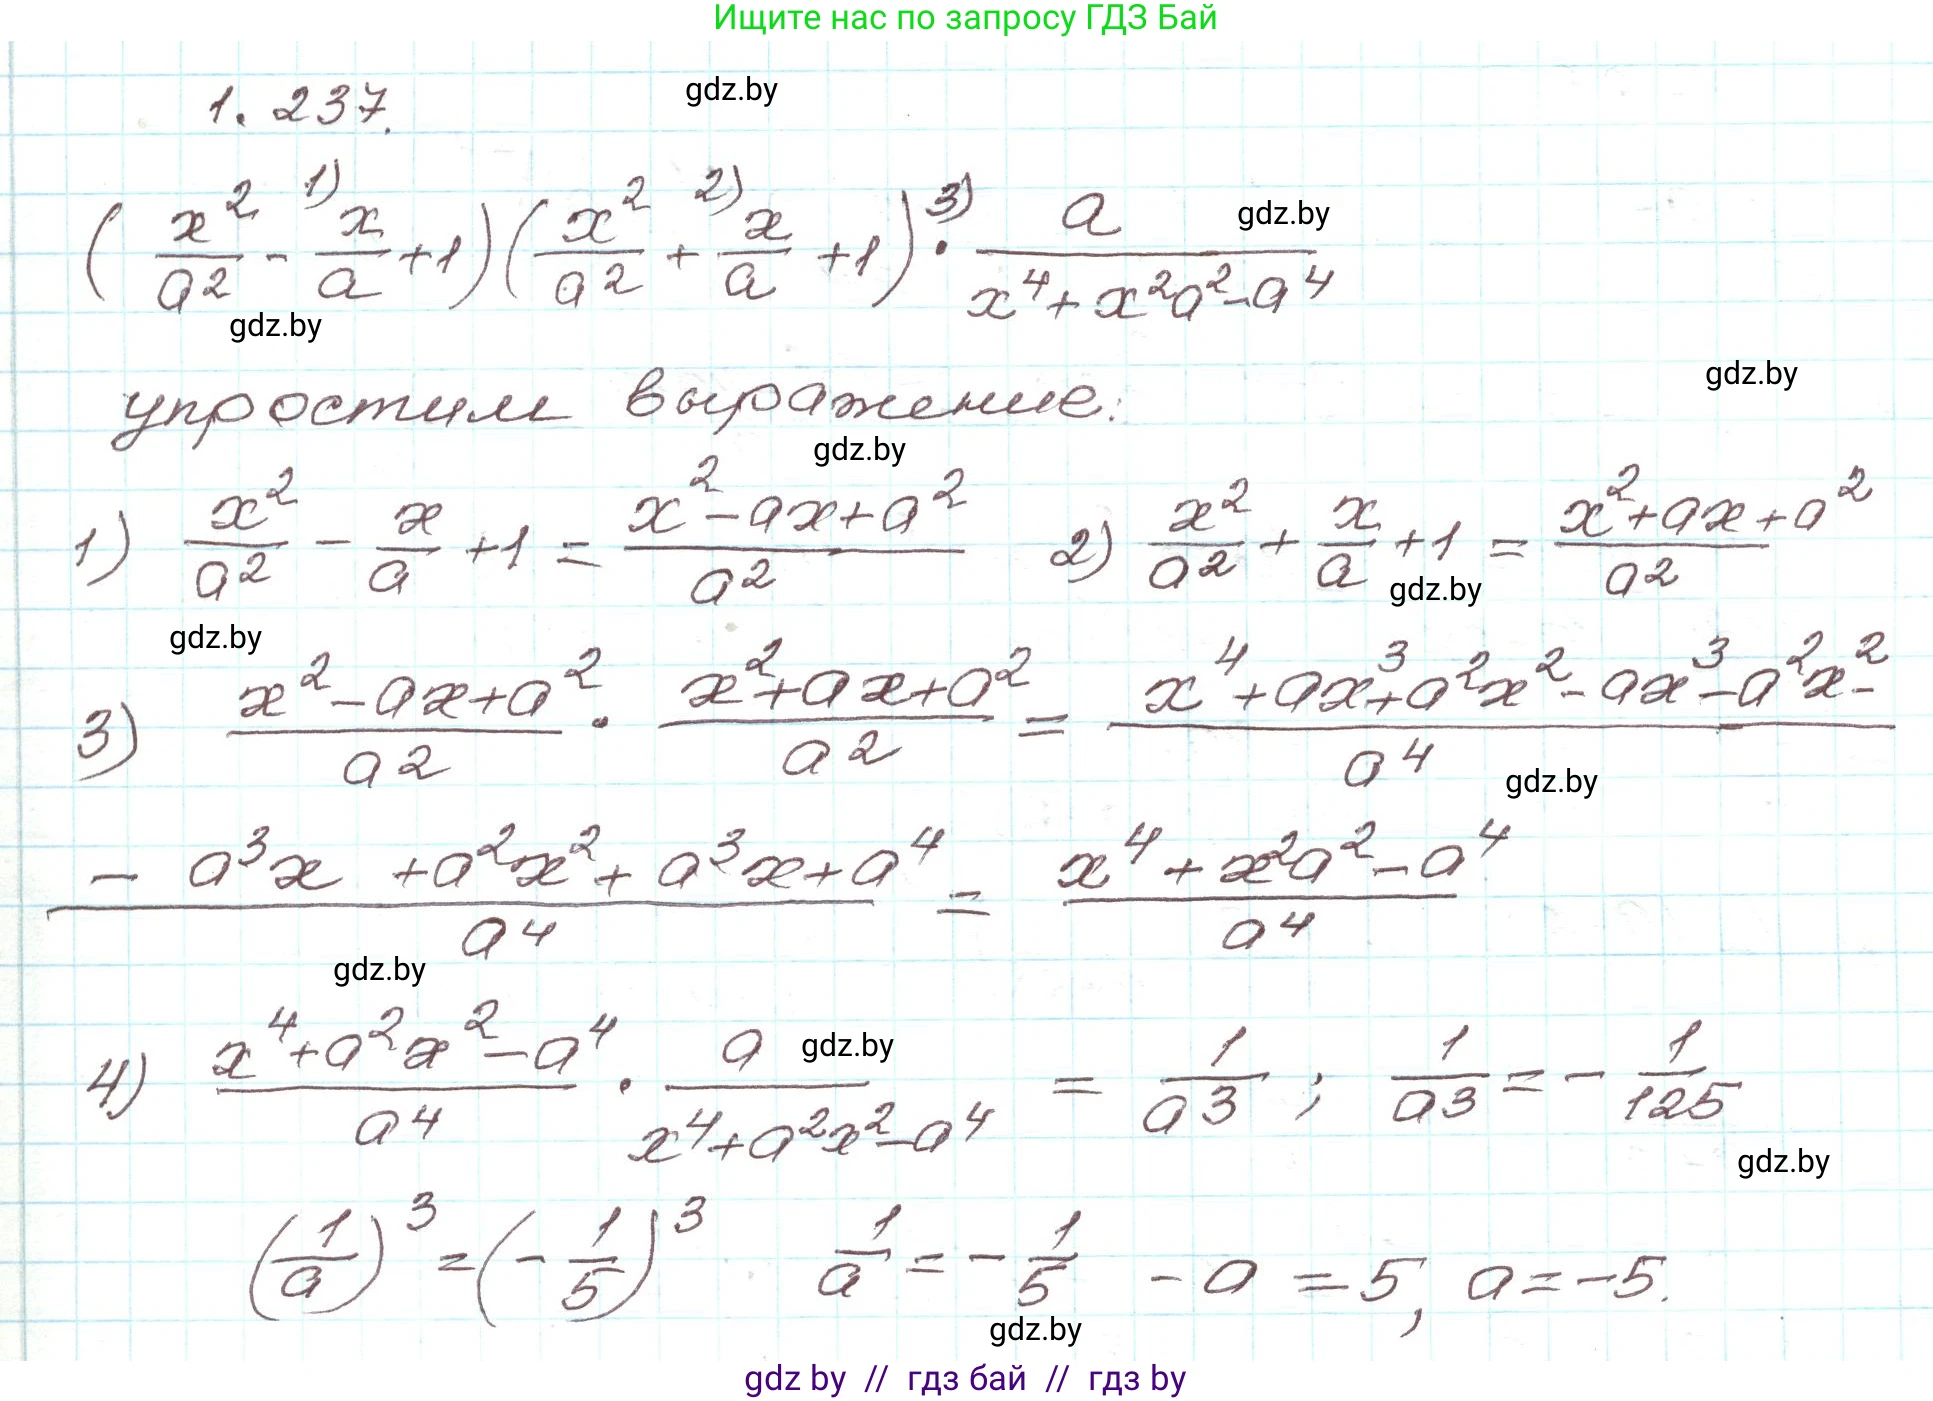 Ищите нас по запросу ГДЗ Бай
1. 237.
gdz.by
( x²/a² - ¹⁾ x/a + 1 )( x²/a² + ²⁾ x/a + 1 ) ·³⁾ a/(x⁴ + x²a² - a⁴)
gdz.by
gdz.by
упростим выражение:
gdz.by
gdz.by
1) x²/a² - x/a + 1 = (x² - ax + a²)/a² 2) x²/a² + x/a + 1 = (x² + ax + a²)/a²
gdz.by
gdz.by
3) (x² - ax + a²)/a² · (x² + ax + a²)/a² = (x⁴ + ax³ + a²x² - ax³ - a²x² -)/a⁴
gdz.by
(- a³x + a²x² + a³x + a⁴)/a⁴ = (x⁴ + x²a² - a⁴)/a⁴
gdz.by
4) (x⁴ + a²x² - a⁴)/a⁴ · a/(x⁴ + a²x² - a⁴) = 1/a³ ; 1/a³ = - 1/125
gdz.by
gdz.by
(1/a)³ = (- 1/5)³ 1/a = - 1/5 - a = 5, a = -5.
gdz.by
gdz by // гдз бай // гдз by